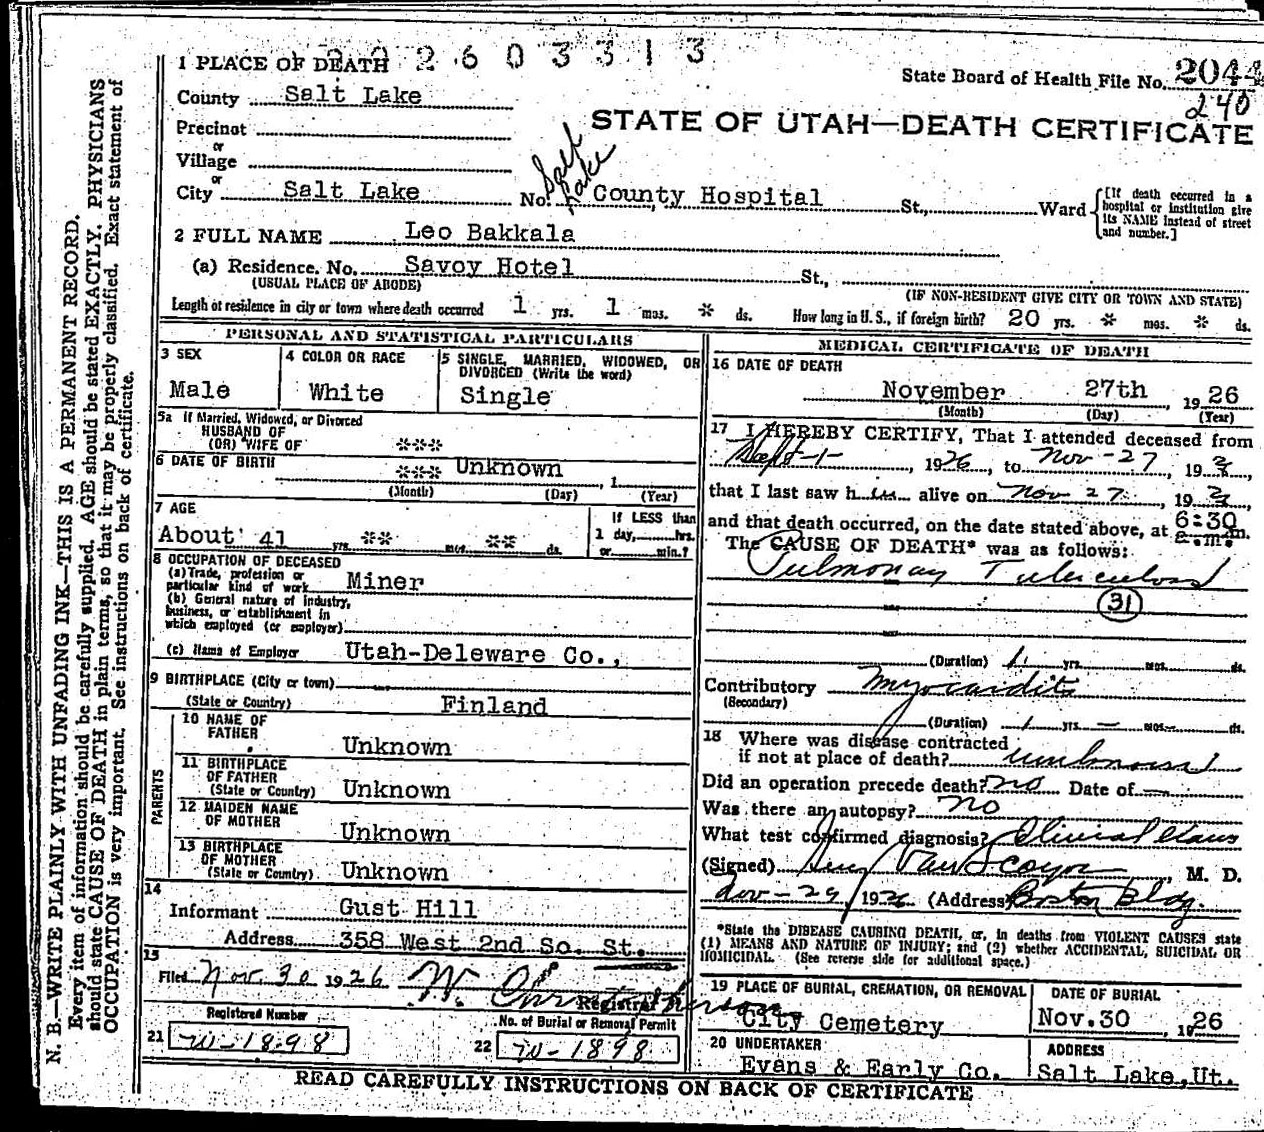 2 6 0 3 3 1 3
1 PLACE OF DEATH
State Board of Health File No. 2044
240
County Salt Lake
STATE OF UTAH—DEATH CERTIFICATE
Precinct
or
Village
or
City Salt Lake No. Salt Lake County Hospital St., Ward
[If death occurred in a hospital or institution give its NAME instead of street and number.]
2 FULL NAME Leo Bakkala
(a) Residence. No. Savoy Hotel St.,
(USUAL PLACE OF ABODE)
(IF NON-RESIDENT GIVE CITY OR TOWN AND STATE)
Length of residence in city or town where death occurred 1 yrs. 1 mos. * ds. How long in U. S., if foreign birth? 20 yrs. * mos. * ds.
PERSONAL AND STATISTICAL PARTICULARS
3 SEX
Male
4 COLOR OR RACE
White
5 SINGLE, MARRIED, WIDOWED, OR
DIVORCED (Write the word)
Single
5a If Married, Widowed, or Divorced
HUSBAND OF
(OR) WIFE OF ***
6 DATE OF BIRTH *** Unknown , 1
(Month) (Day) (Year)
7 AGE
About 41 yrs. ** mos. ** ds.
If LESS than
1 day, hrs.
or min.?
8 OCCUPATION OF DECEASED
(a) Trade, profession or
particular kind of work Miner
(b) General nature of industry,
business, or establishment in
which employed (or employer)
(c) Name of Employer Utah-Deleware Co.,
9 BIRTHPLACE (City or town)
(State or Country) Finland
PARENTS
10 NAME OF
FATHER Unknown
11 BIRTHPLACE
OF FATHER
(State or Country) Unknown
12 MAIDEN NAME
OF MOTHER Unknown
13 BIRTHPLACE
OF MOTHER
(State or Country) Unknown
14
Informant Gust Hill
Address 358 West 2nd So. St.
15
Filed Nov. 30 1926 W. Christopherson
Registrar
Registered Number
21 W-1898
No. of Burial or Removal Permit
22 W-1898
MEDICAL CERTIFICATE OF DEATH
16 DATE OF DEATH
November 27th , 1926
(Month) (Day) (Year)
17 I HEREBY CERTIFY, That I attended deceased from
Sept-1- , 1926, to Nov-27, 192
that I last saw him alive on Nov 27, 192
and that death occurred, on the date stated above, at 6:30 m.
The CAUSE OF DEATH* was as follows:
Pulmonary Tuberculosis
31
(Duration) 1 yrs. mos. ds.
Contributory Myocarditis
(Secondary)
(Duration) 1 yrs. — mos. ds.
18 Where was disease contracted
if not at place of death? unknown
Did an operation precede death? no Date of —
Was there an autopsy? no
What test confirmed diagnosis? Clinical
(Signed) Van Scoyoc, M. D.
Nov-29, 1926 (Address) Boston Bldg.
*State the DISEASE CAUSING DEATH, or, in deaths from VIOLENT CAUSES state
(1) MEANS AND NATURE OF INJURY; and (2) whether ACCIDENTAL, SUICIDAL, OR
HOMICIDAL. (See reverse side for additional space.)
19 PLACE OF BURIAL, CREMATION, OR REMOVAL
City Cemetery
DATE OF BURIAL
Nov.30 , 1926
20 UNDERTAKER
Evans & Early Co.
ADDRESS
Salt Lake, Ut.
READ CAREFULLY INSTRUCTIONS ON BACK OF CERTIFICATE
N. B.—WRITE PLAINLY WITH UNFADING INK—THIS IS A PERMANENT RECORD.
Every item of information should be carefully supplied. AGE should be stated EXACTLY. PHYSICIANS
should state CAUSE OF DEATH in plain terms, so that it may be properly classified. Exact statement of
OCCUPATION is very important. See instructions on back of certificate.